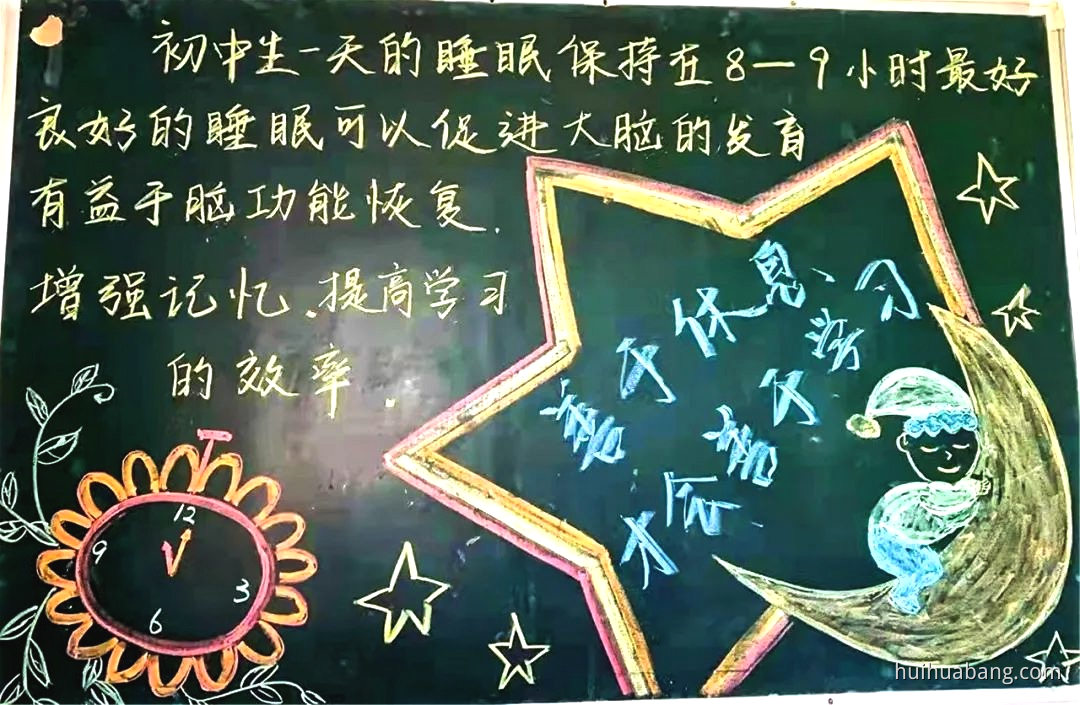 初中生一天的睡眠保持在8—9小时最好
良好的睡眠可以促进大脑的发育
有益于脑功能恢复.
增强记忆.提高学习
的效率.
善于休息、
才会善于学习
12
9
3
6
huihuabang.com